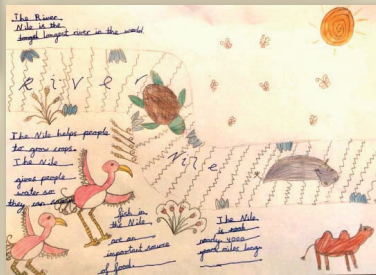 The River
Nile is the
longest river in the world.
River
Nile
The Nile helps people
to grow crops.
The Nile
gives people
water so
they can
fish in
the Nile
are an
important source
of food.
The Nile
is
nearly 4000
miles long.